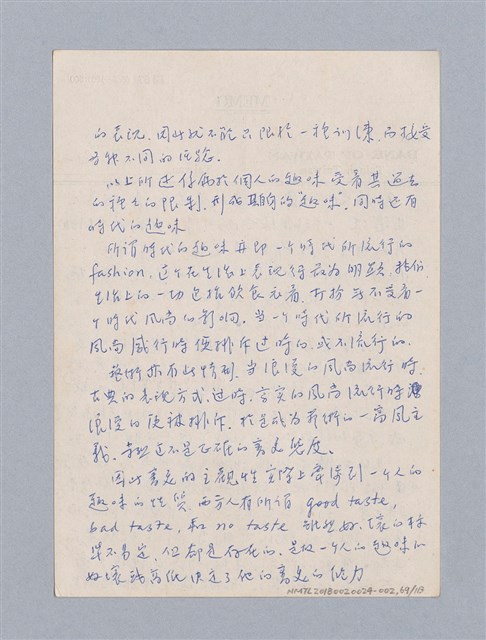 的表现。因此我不能只限於一種训練,而接受
各種不同的经驗。
以上所述僅属於個人的趣味受着其過去
的種々的限制,形成其個人的"趣味",同時还有
時代的趣味
所謂時代的趣味再即一个時代所流行的
fashion,这个在生活上表现得最为明显,我们
生活上的一切包括飲食衣着,打扮無不受着一
个時代風尚的影响。当一个時代所流行的
風尚盛行時便排斥过時的,或不流行的。
藝術亦有此情形,当浪漫的風尚流行時,
古典的表现方式,过時,写实的風尚流行時
浪漫的便被排斥。於是成为藝術的一窩风主
義。無疑这不是正在的審美態度。
因此審美的主観性实際上牽涉到一个人的
趣味的性質。西方人有所謂 good taste,
bad taste,和 no taste 雖然好、壞的标
準不易定,但却是存在的。是故一个人的趣味的
好壞或高低决定了他的審美的能力
NMTL20180020024-002,69/118